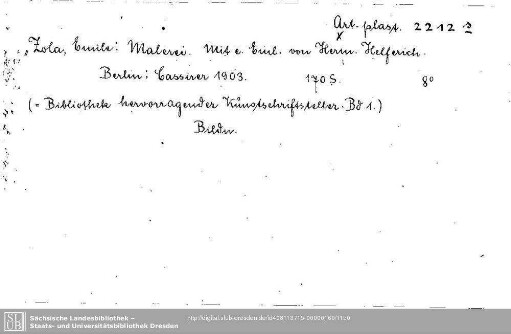 Art. plast. 2212
x
Zola, Emile: Malerei. Mit e. Einl. von Herm. Helferich.
Berlin: Cassirer 1903. 170 S. 8°
(= Bibliothek hervorragender Kunstschriftsteller. Bd 1.)
Bildn.
SLUB
Sächsische Landesbibliothek –
Staats- und Universitätsbibliothek Dresden